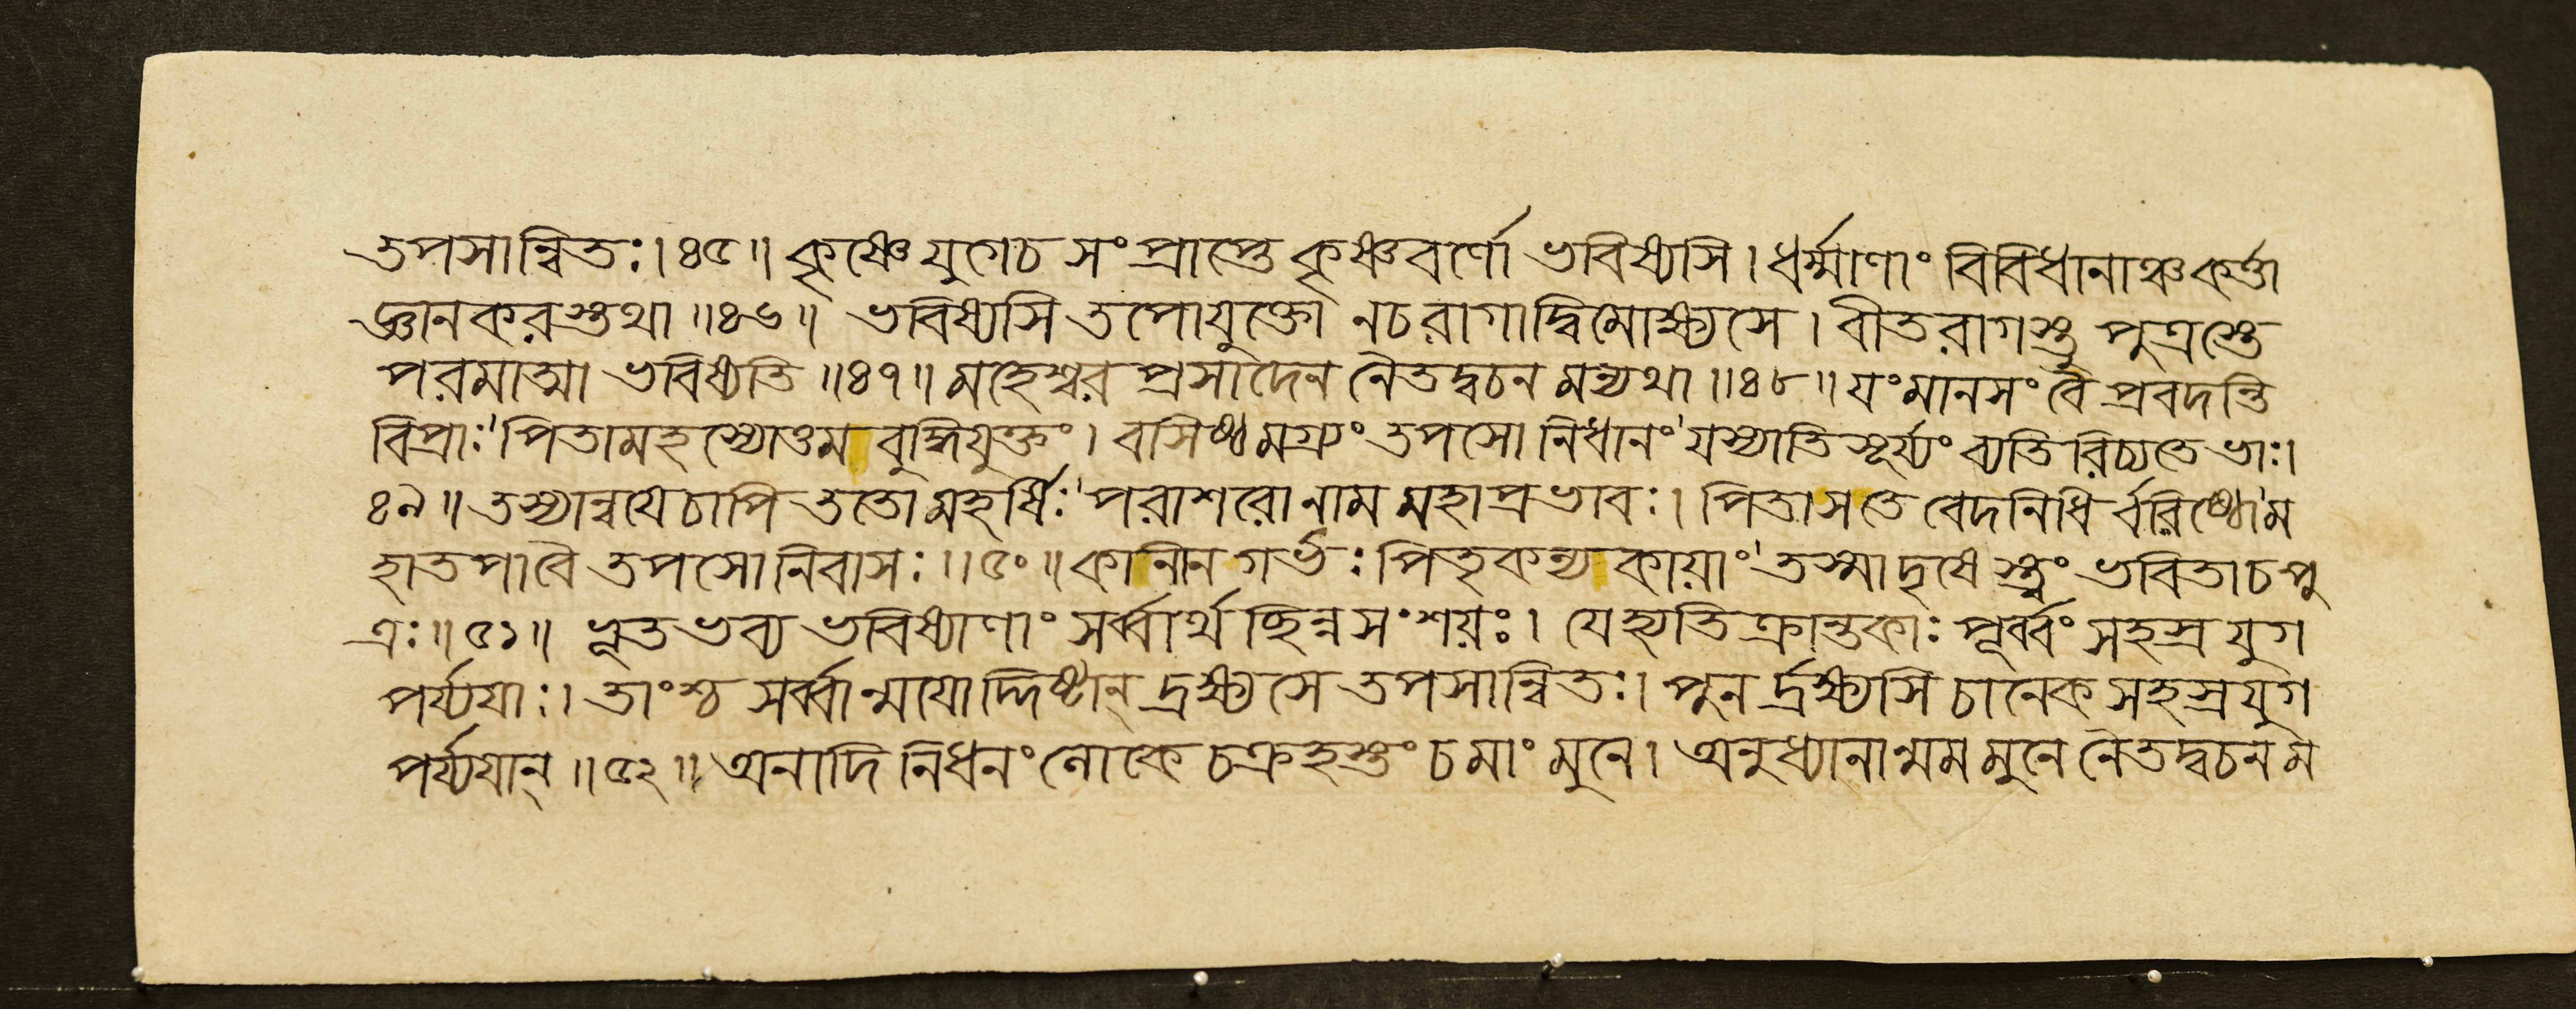 তপসান্বিতঃ।৪৫॥ কৃষ্ণে যুগেচ সংপ্রাপ্তে কৃষ্ণবর্ণো ভবিষ্যসি। ধর্ম্মাণাং বিবিধানাঞ্চকর্ত্তা
জ্ঞানকরস্তথা॥৪৬॥ ভবিষ্যসি তপোযুক্তো নচরাগাদ্বিমোক্ষ্যসে। বীতরাগস্তু পুত্রস্তে
পরমাত্মা ভবিষ্যতি॥৪৭॥ মহেশ্বর প্রসাদেন নৈতদ্বচন মন্যথা॥৪৮॥ যংমানসং বৈ প্রবদন্তি
বিপ্রাঃ' পিতামহস্যোত্তম বুদ্ধিযুক্তং। বাসিষ্ঠমগ্র্যং তপসো নিধানং' যস্যাতি সূর্য্যং ব্যতিরিচ্যতে ভাঃ।
৪৯॥ তস্যান্বযেচাপি ততো মহর্ষিঃ' পরাশরোনাম মহাপ্রভাবঃ। পিতাসতে বেদনিধি র্বরিষ্ঠো' ম
হাতপাবৈ তপসো নিবাসঃ॥৫০॥ কানীনগর্ভঃ পিতৃকন্যকায়াং' তস্মাদৃষে স্ত্বং ভবিতাচপু
ত্রঃ॥৫১॥ ভূতভব্য ভবিষ্যাণাং সর্ব্বার্থচ্ছিন্নসংশয়ঃ। যেহ্যতিক্রান্তকাঃ পূর্ব্বং সহস্র যুগ
পর্য্যযাঃ। তাংশ্চ সর্ব্বান্মযোদ্দিষ্টান্ দ্রক্ষ্যসে তপসান্বিতঃ। পুনর্দ্রক্ষ্যসি চানেক সহস্রযুগ
পর্য্যযান্॥৫২॥ অনাদি নিধনং লোকে চক্রহস্তং চমাং মুনে। অনুধ্যানান্মম মুনে নৈতদ্বচনম